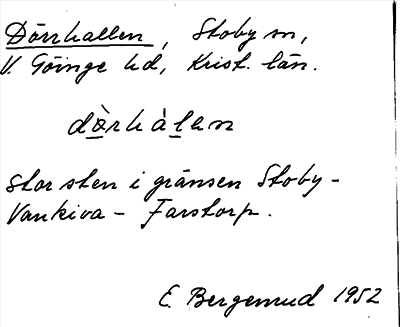 Dörrhallen, Stoby sn,
V. Göinge hd, Krist. län.
dàrhàlen
Stor sten i gränsen Stoby-
Vankiva - Farstorp.
E. Bergemud 1952